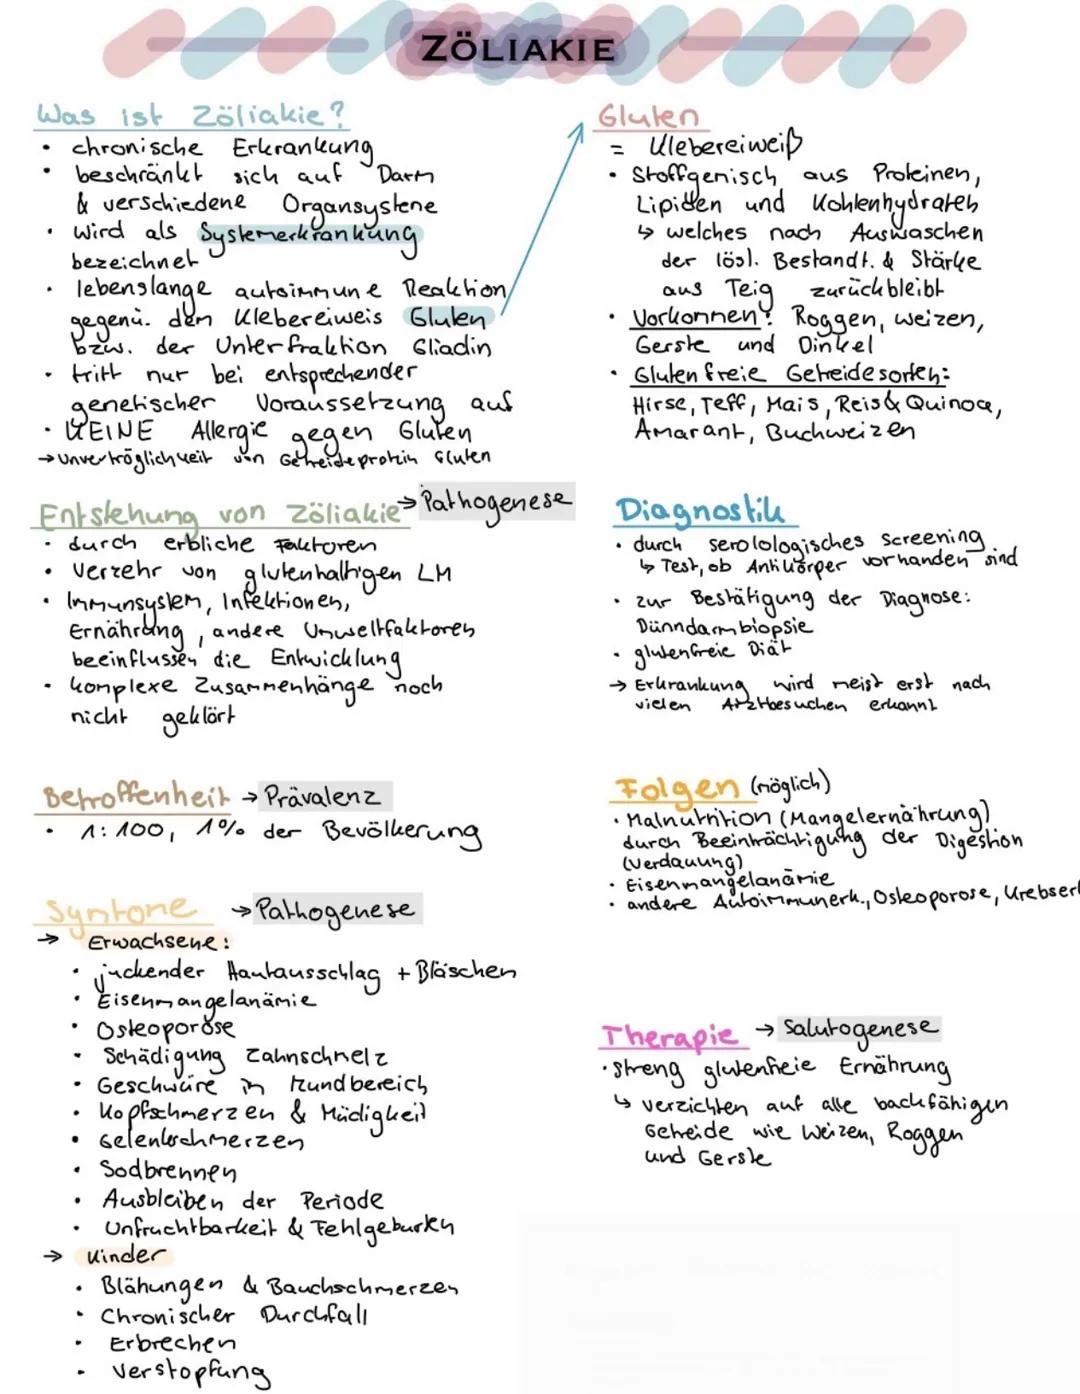 ZÖLIAKIE
Was ist Zöliakie?
• chronische Erkrankung
• beschränkt sich auf Darm
& verschiedene Organsysteme
• wird als Systemerkrankung
bezeichnet
• lebenslange autoimmune Reaktion
gegenü. dem Klebereiweis Gluten
bzw. der Unterfraktion Gliadin
• tritt nur bei entsprechender
genetischer Voraussetzung auf
• KEINE Allergie gegen Gluten
→ Unverträglichkeit von Getreideprotein Gluten
Entstehung von Zöliakie → Pathogenese
• durch erbliche Faktoren
• Verzehr von glutenhaltigen LM
• Immunsystem, Infektionen,
Ernährung, andere Umweltfaktoren
beeinflussen die Entwicklung
• komplexe Zusammenhänge noch
nicht geklärt
Betroffenheit → Prävalenz
• 1:100, 1% der Bevölkerung
Symtome → Pathogenese
→ Erwachsene:
• juckender Hautausschlag + Bläschen
• Eisenmangelanämie
• Osteoporose
• Schädigung Zahnschmelz
• Geschwüre in Mundbereich
• Kopfschmerzen & Müdigkeit
• Gelenkschmerzen
• Sodbrennen
• Ausbleiben der Periode
• Unfruchtbarkeit & Fehlgeburten
→ Kinder
• Blähungen & Bauchschmerzen
• Chronischer Durchfall
• Erbrechen
• Verstopfung
Gluten
= Klebereiweiß
• Stoffgemisch aus Proteinen,
Lipiden und Kohlenhydraten
↳ welches nach Auswaschen
der lösl. Bestandt. & Stärke
aus Teig zurückbleibt
• Vorkommen: Roggen, weizen,
Gerste und Dinkel
• Glutenfreie Getreidesorten:
Hirse, Teff, Mais, Reis & Quinoa,
Amarant, Buchweizen
Diagnostik
• durch serolologisches Screening
↳ Test, ob Antikörper vorhanden sind
• zur Bestätigung der Diagnose:
Dünndarmbiopsie
• glutenfreie Diät
→ Erkrankung wird meist erst nach
vielen Arztbesuchen erkannt
Folgen (möglich)
• Malnutrition (Mangelernährung)
durch Beeinträchtigung der Digestion
(Verdauung)
• Eisenmangelanämie
• andere Autoimmunerk., Osteoporose, Krebserk
Therapie → Salutogenese
• streng glutenfreie Ernährung
↳ verzichten auf alle backfähigen
Getreide wie Weizen, Roggen
und Gerste